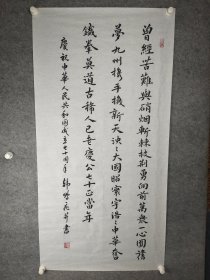 曾經苦難與硝烟斬棘披荆勇向前萬衆一心圓
夢九州携手換新天泱々大國昭寰宇浩々中華奮
鐵拳莫道古稀人已老慶公七十正當年
慶祝中華人民共和國成立七十周年 韓書